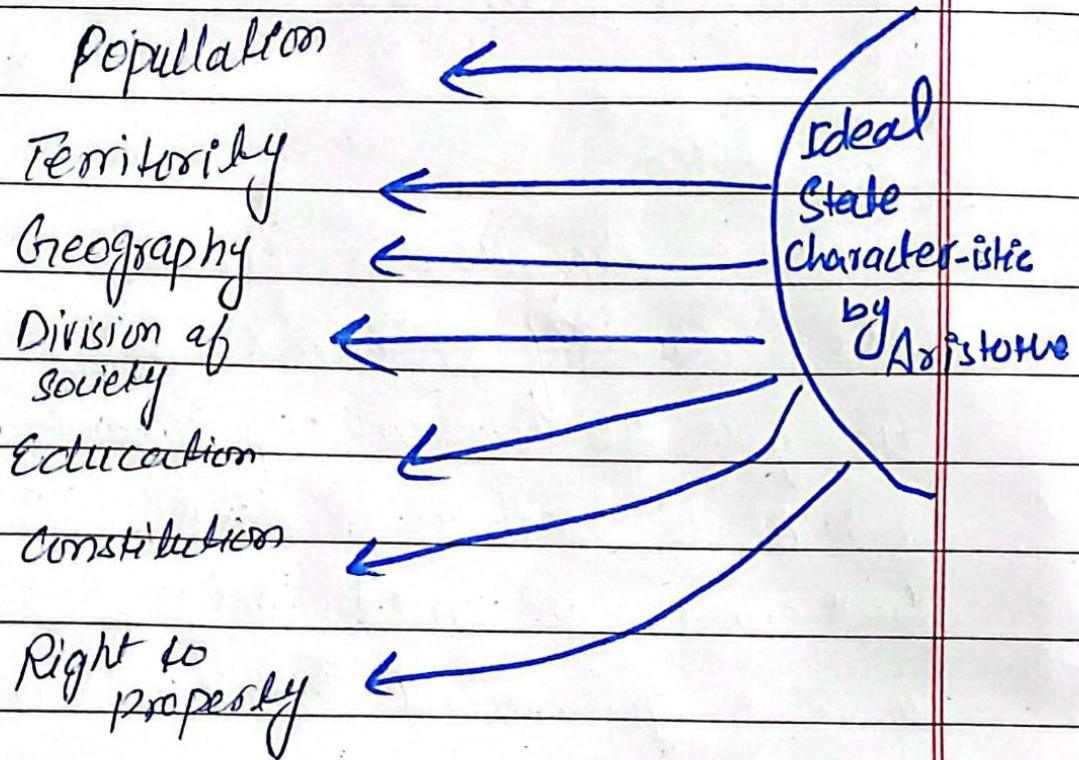 Popullation
Territority
Geography
Division of
society
Education
Constitution
Right to
property
Ideal
State
Character-istic
by
Aristotle